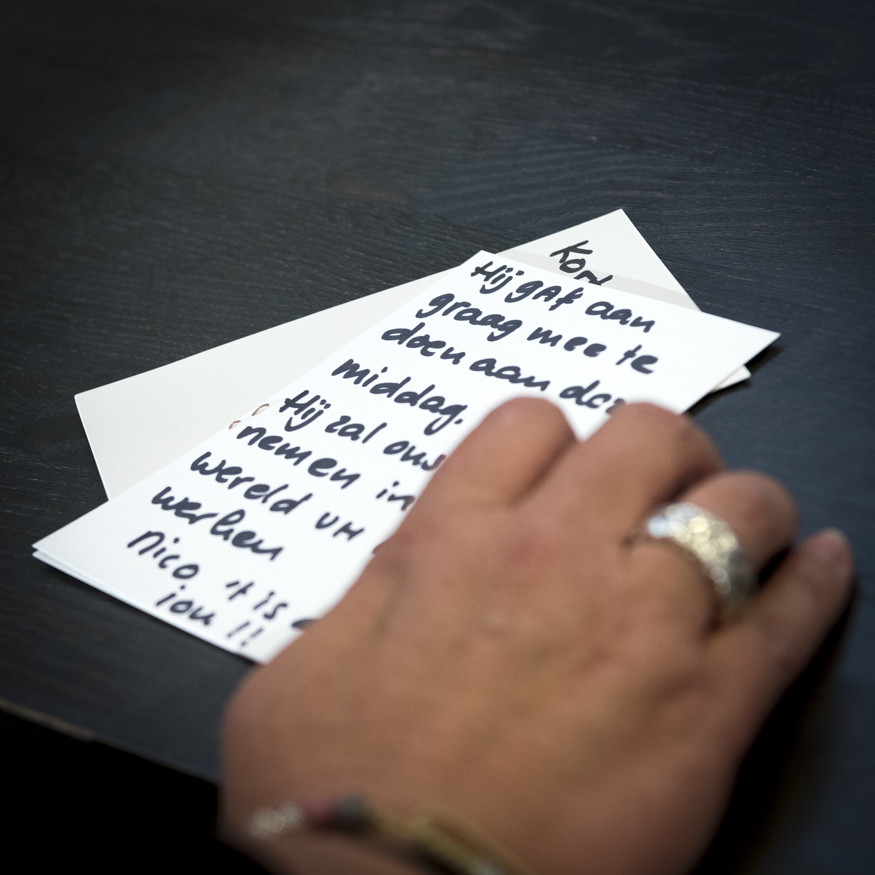 Kon
Hij gAf aan
graag mee te
doen aan
middag.
Hij zal
nemen in
wereld
werken
nico 't is
jou !!